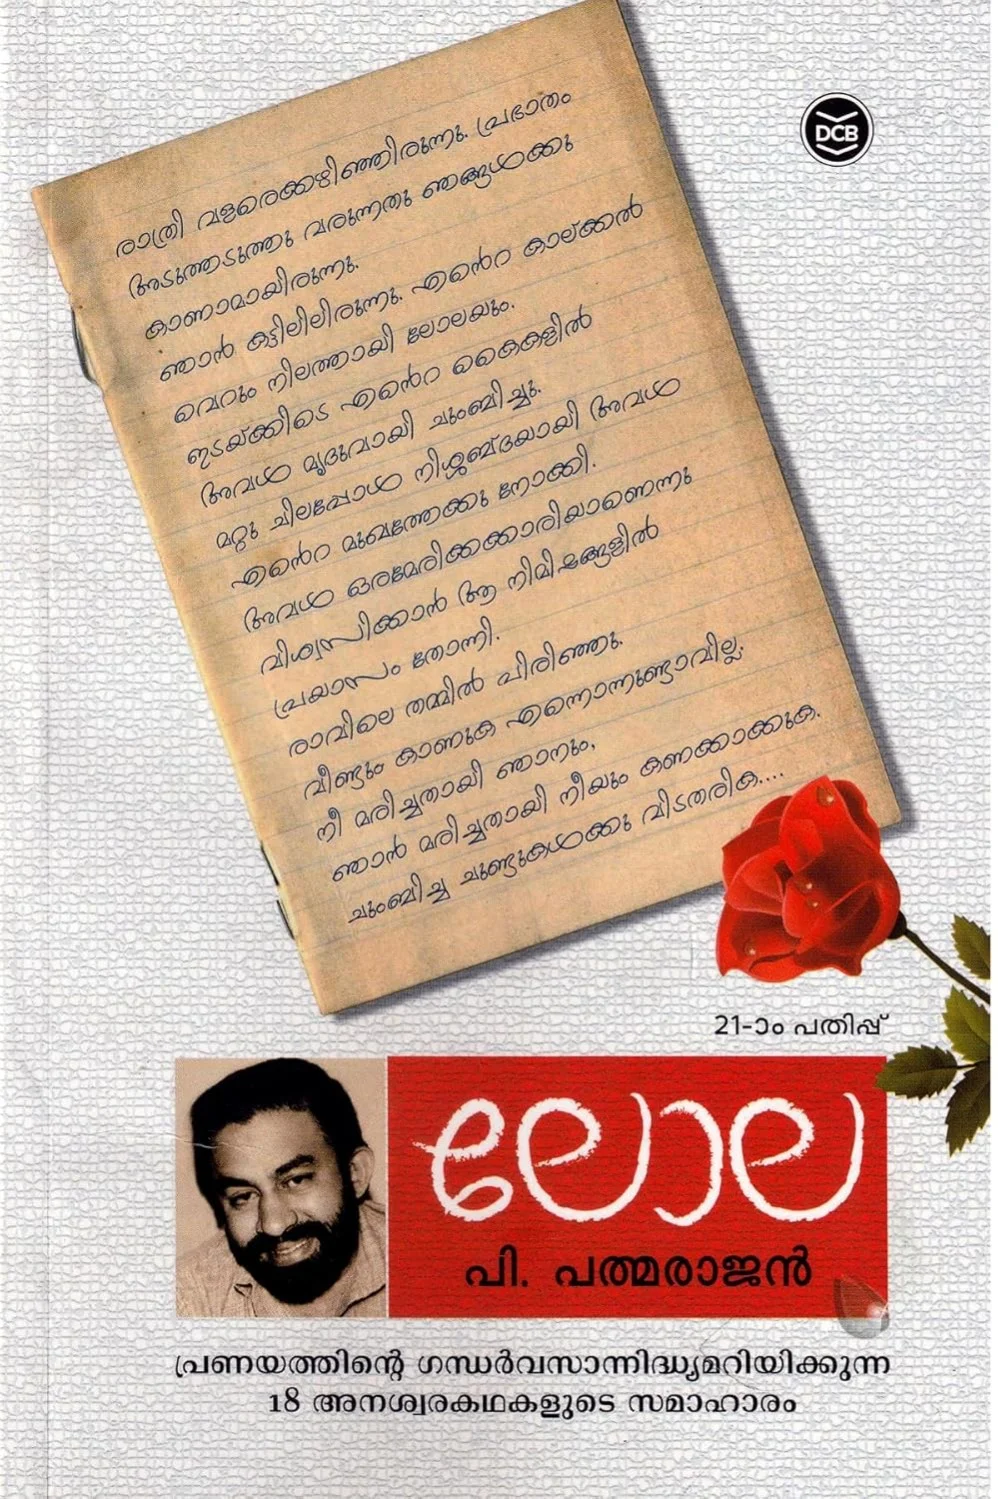 DCB
രാത്രി വളരെക്കഴിഞ്ഞിരുന്നു. പ്രഭാതം
അടുത്തടുത്തു വരുന്നതു ഞങ്ങൾക്കു
കാണാമായിരുന്നു.
ഞാൻ കട്ടിലിലിരുന്നു. എൻെറ കാല്ക്കൽ
വെറും നിലത്തായി ലോലയും.
ഇടയ്ക്കിടെ എൻെറ കൈകളിൽ
അവൾ മൃദുവായി ചുംബിച്ചു.
മറ്റു ചിലപ്പോൾ നിശ്ശബ്ദയായി അവൾ
എൻെറ മുഖത്തേക്കു നോക്കി.
അവൾ ഒരമേരിക്കക്കാരിയാണെന്നു
വിശ്വസിക്കാൻ ആ നിമിഷങ്ങളിൽ
പ്രയാസം തോന്നി.
രാവിലെ തമ്മിൽ പിരിഞ്ഞു.
വീണ്ടും കാണുക എന്നൊന്നുണ്ടാവില്ല.
നീ മരിച്ചതായി ഞാനും,
ഞാൻ മരിച്ചതായി നീയും കണക്കാക്കുക.
ചുംബിച്ച ചുണ്ടുകൾക്കു വിടതരിക....
21-ാം പതിപ്പ്
ലോല
പി. പത്മരാജൻ
പ്രണയത്തിന്റെ ഗന്ധർവസാന്നിദ്ധ്യമറിയിക്കുന്ന
18 അനശ്വരകഥകളുടെ സമാഹാരം